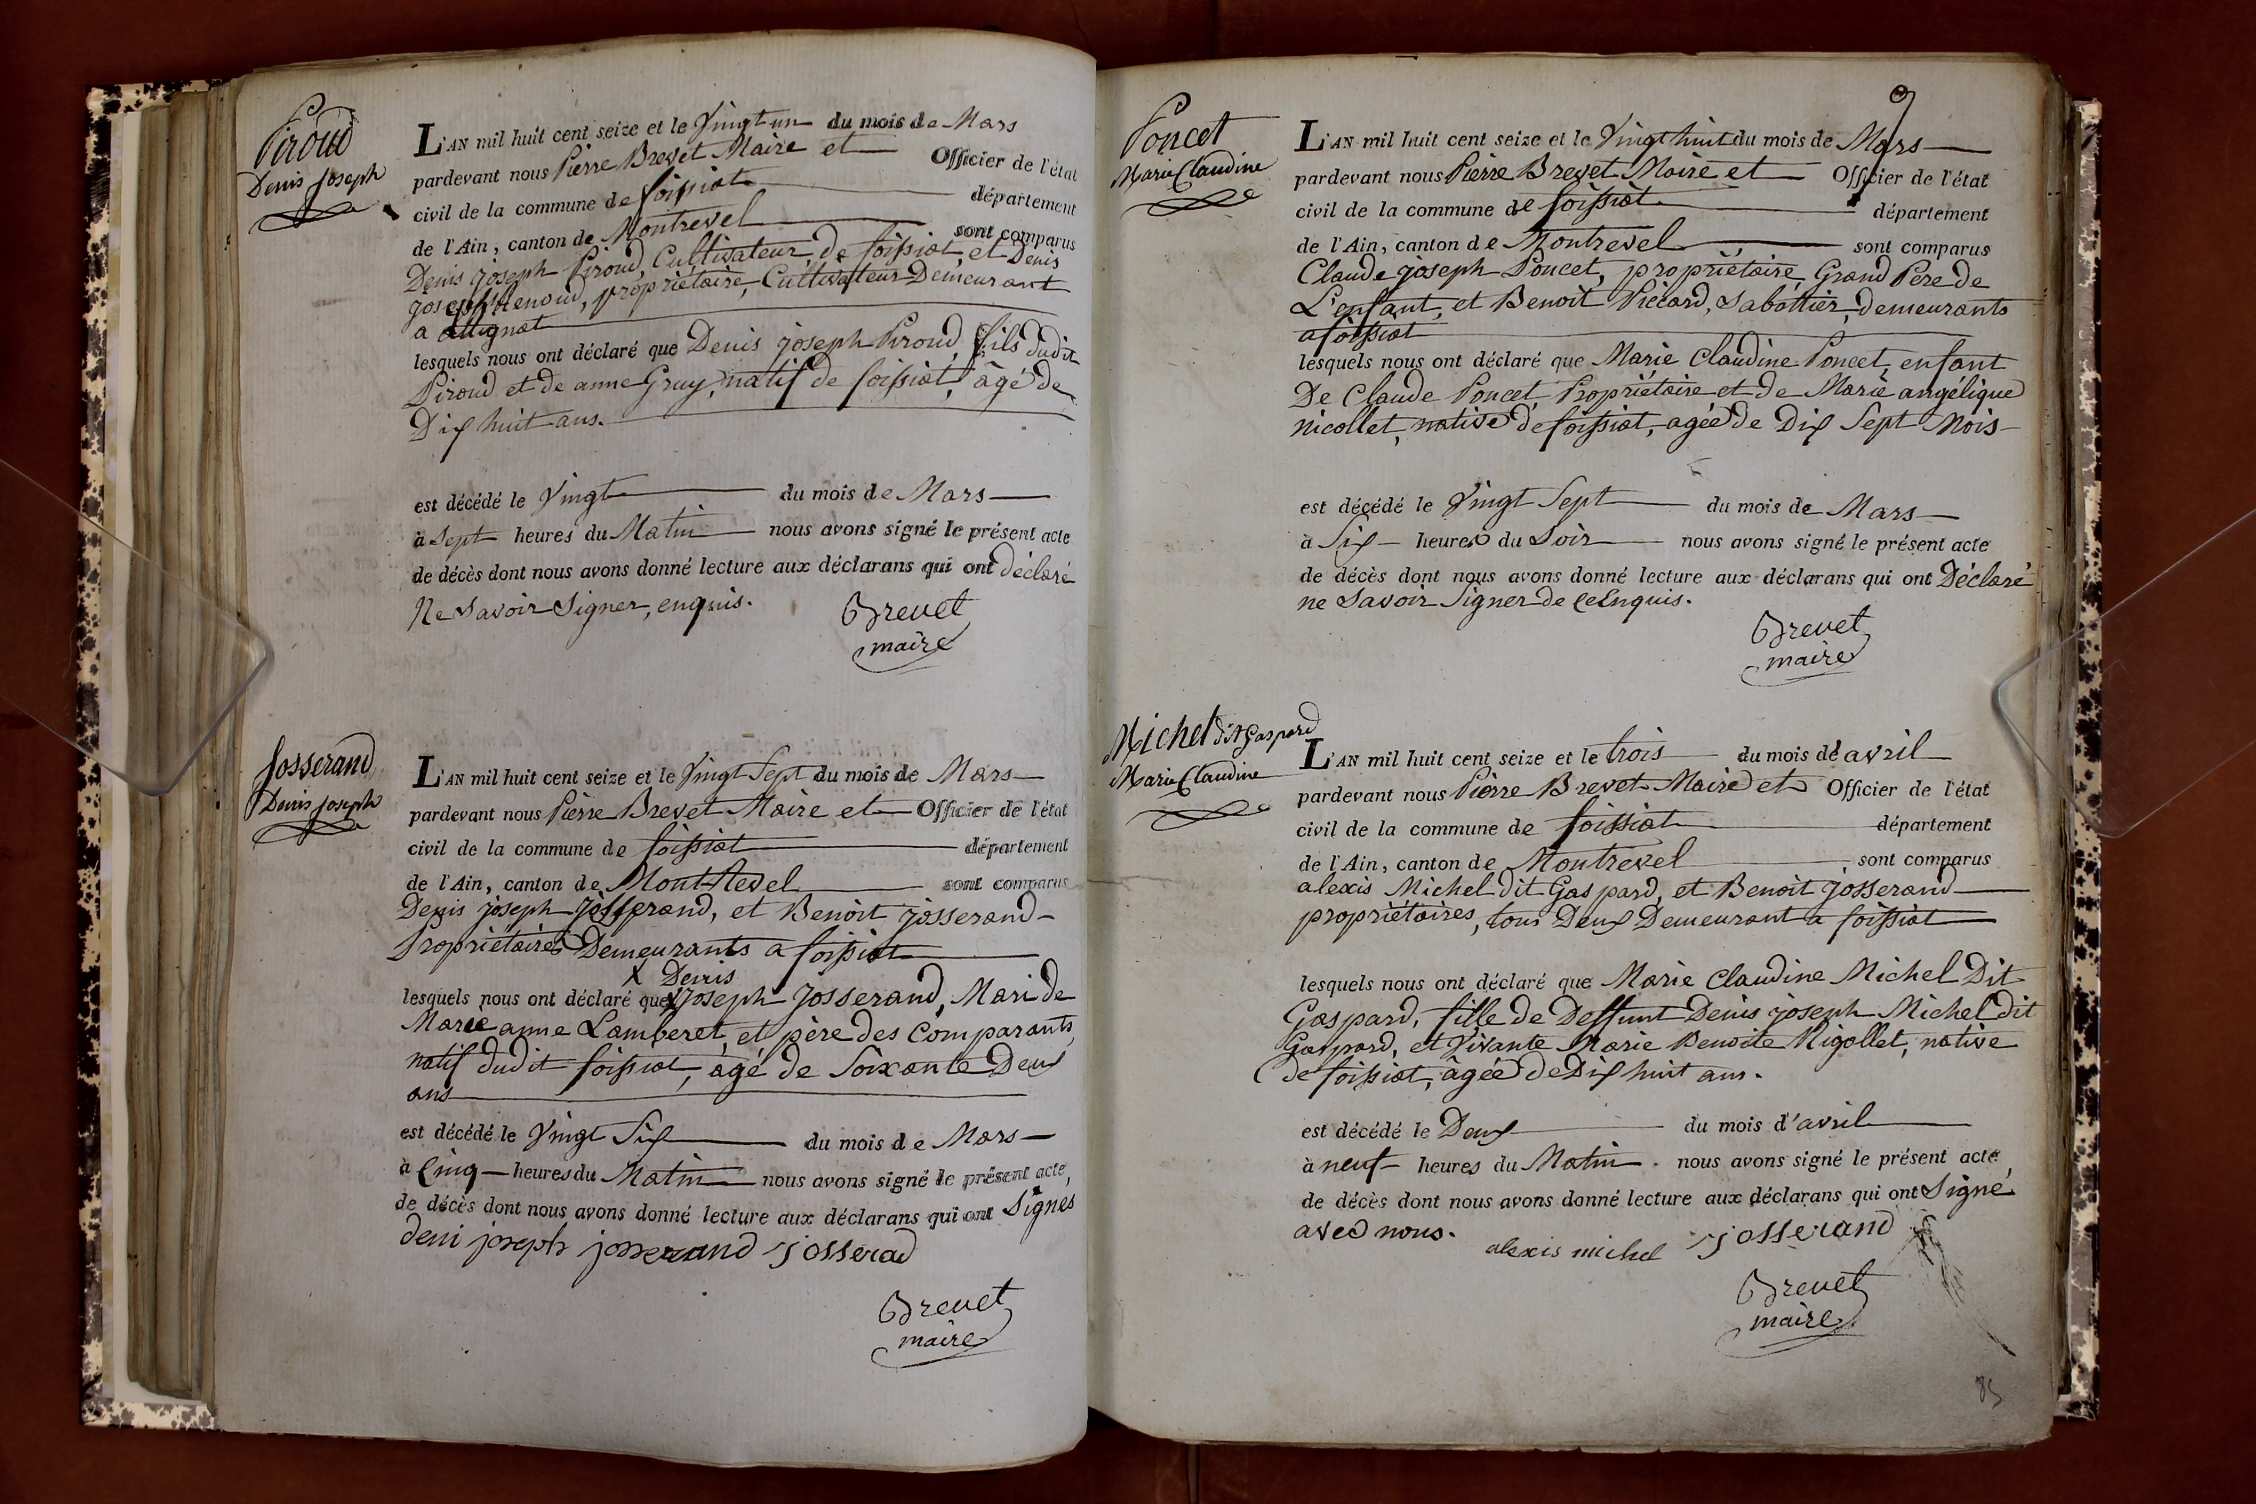 Piroud
Denis Joseph
L'AN mil huit cent seize et le Vingt un du mois de Mars
pardevant nous Pierre Brevet Maire et Officier de l'état
civil de la commune de foissiat département
de l'Ain, canton de Montrevel sont comparus
Denis joseph Piroud, Cultivateur de foissiat, et Denis
joseph Renoud, propriétaire, Cultivateur Demeurant
a attignat
lesquels nous ont déclaré que Denis joseph Piroud, fils dudit
Piroud et de anne Gruy, natif de foissiat, âgé de
Dix huit ans.
est décédé le Vingt du mois de Mars
à Sept heures du Matin nous avons signé le présent acte
de décès dont nous avons donné lecture aux déclarans qui ont déclaré
Ne Savoir Signer, enquis.
Brevet
maire
Josserand
Denis Joseph
L'AN mil huit cent seize et le Vingt Sept du mois de Mars
pardevant nous Pierre Brevet Maire et Officier de l'état
civil de la commune de foissiat département
de l'Ain, canton de Montrevel sont comparus
Denis joseph josserand, et Benoit josserand
Propriétaires Demeurants a foissiat
X Denis
lesquels nous ont déclaré que X joseph Josserand, Mari de
Marie anne Lamberet, et père des Comparants,
natif dudit foissiat, âgé de Soixante Deux
ans
est décédé le Vingt Six du mois de Mars
à Cinq heures du Matin nous avons signé le présent acte,
de décès dont nous avons donné lecture aux déclarans qui ont Signés
deni joseph josserand j josserad
Brevet
maire
9
Poncet
Marie Claudine
L'AN mil huit cent seize et le Vingt huit du mois de Mars
pardevant nous Pierre Brevet Maire et Officier de l'état
civil de la commune de foissiat département
de l'Ain, canton de Montrevel sont comparus
Claude joseph Poncet, propriétaire, Grand Pere de
L'enfant, et Benoit Piccard, Sabottier, demeurants
a foissiat
lesquels nous ont déclaré que Marie Claudine Poncet, enfant
De Claude Poncet Propriétaire et de Marie angélique
nicollet, native de foissiat, agée de Dix Sept Mois
est décédé le Vingt Sept du mois de Mars
à Six heures du Soir nous avons signé le présent acte
de décès dont nous avons donné lecture aux déclarans qui ont Déclaré
ne Savoir Signer de ce Enquis.
Brevet
maire
Michel dit Gaspard
Marie Claudine
L'AN mil huit cent seize et le trois du mois de avril
pardevant nous Pierre Brevet Maire et Officier de l'état
civil de la commune de foissiat département
de l'Ain, canton de Montrevel sont comparus
alexis Michel dit Gaspard, et Benoit josserand
propriétaires, tous Deux Demeurant a foissiat
lesquels nous ont déclaré que Marie Claudine Michel Dit
Gaspard, fille de Deffunt Denis joseph Michel dit
Gaspard, et Vivante Marie Benoite Nigollet, native
de foissiat, âgée de Dix huit ans.
est décédé le Deux du mois d'avril
à neuf heures du Matin. nous avons signé le présent acte
de décès dont nous avons donné lecture aux déclarans qui ont Signé
avec nous.
alexis michel j josserand
Brevet
maire
85